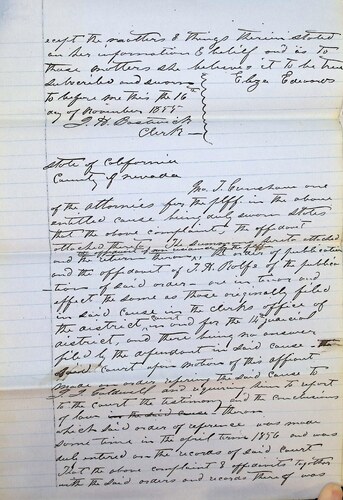 except the matters & things therein stated
on her information & belief and as to
those matters she believes it to be true
subscribed and sworn Eliza Edwards
to before me this the 16th
day of November 1855
J. H. Bostwick
Clerk
State of California
County of Nevada
Wm. T. one
of the attornies for the plff. in the above
entitled cause being duly sworn states
that the above complaint & the affidavit
attached thereto, the summons attached
and the return thereon, the order of publication
and the affidavit of T. H. Rolfe of the publica-
tion of said order are in tenor and
effect the same as those originally filed
in said cause in the clerks office of
the district, in and for the 14th judicial
district, and there being no answer
filed by the defendant in said cause the
said Court upon motion of this affiant
made an order referring the said cause to
and requiring him to report
to the court the testimony and the conclusions
of law in the said cause thereon
which said order of reference was made
some time in the april term 1856 and was
duly entered on the records of said Court
That the above complaint & affidavits together
with the said orders and records thereof was